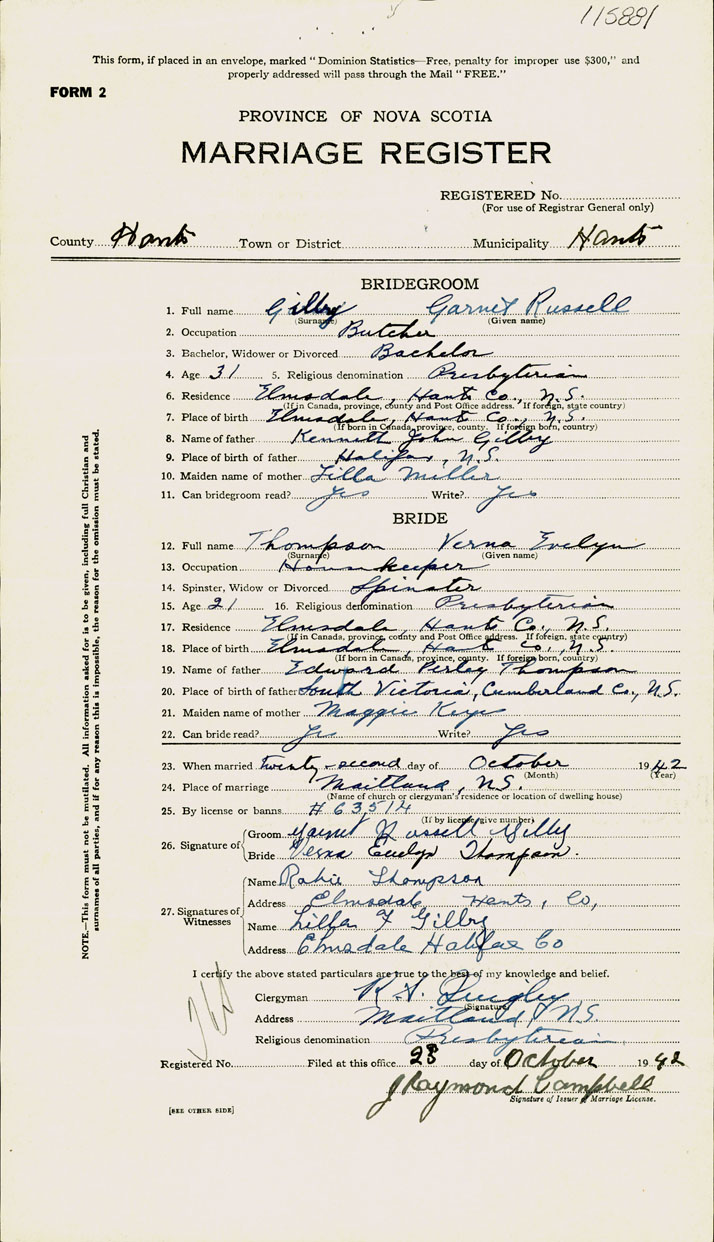 115881
This form, if placed in an envelope, marked "Dominion Statistics—Free, penalty for improper use $300," and
properly addressed will pass through the Mail "FREE."
FORM 2
PROVINCE OF NOVA SCOTIA
MARRIAGE REGISTER
REGISTERED No.
(For use of Registrar General only)
County Hants Town or District Municipality Hants
BRIDEGROOM
1. Full name Gilby Garnet Russell
(Surname) (Given name)
2. Occupation Butcher
3. Bachelor, Widower or Divorced Bachelor
4. Age 31 5. Religious denomination Presbyterian
6. Residence Elmsdale, Hants Co., N.S.
(If in Canada, province, county and Post Office address. If foreign, state country)
7. Place of birth Elmsdale, Hants Co., N.S.
(If born in Canada, province, county. If foreign born, country)
8. Name of father Kenneth John Gilby
9. Place of birth of father Halifax, N.S.
10. Maiden name of mother Lilla Miller
11. Can bridegroom read? Yes Write? Yes
BRIDE
12. Full name Thompson Verna Evelyn
(Surname) (Given name)
13. Occupation Housekeeper
14. Spinster, Widow or Divorced Spinster
15. Age 21 16. Religious denomination Presbyterian
17. Residence Elmsdale, Hants Co., N.S.
(If in Canada, province, county and Post Office address. If foreign, state country)
18. Place of birth Elmsdale, Hants Co., N.S.
(If born in Canada, province, county. If foreign born, country)
19. Name of father Edward Perley Thompson
20. Place of birth of father South Victoria, Cumberland Co., N.S.
21. Maiden name of mother Maggie Keys
22. Can bride read? Yes Write? Yes
23. When married twenty-second day of October 1942
(Month) (Year)
24. Place of marriage Maitland, N.S.
(Name of church or clergyman's residence or location of dwelling house)
25. By license or banns # 63514
(If by license give number)
26. Signature of Groom Garnet Russell Gilby
Bride Verna Evelyn Thompson.
27. Signatures of Witnesses
Name Thompson
Address Elmsdale Hants, Co,
Name Lilla F Gilby
Address Elmsdale Halifax Co
I certify the above stated particulars are true to the best of my knowledge and belief.
Clergyman R. S. Quigley
(Signature)
Address Maitland, N.S.
Religious denomination Presbyterian
Registered No. Filed at this office 28 day of October 1942
J Raymond Campbell
Signature of Issuer of Marriage License.
[SEE OTHER SIDE]
NOTE.—This form must not be mutilated. All information asked for is to be given, including full Christian and
surnames of all parties, and if for any reason this is impossible, the reason for the omission must be stated.